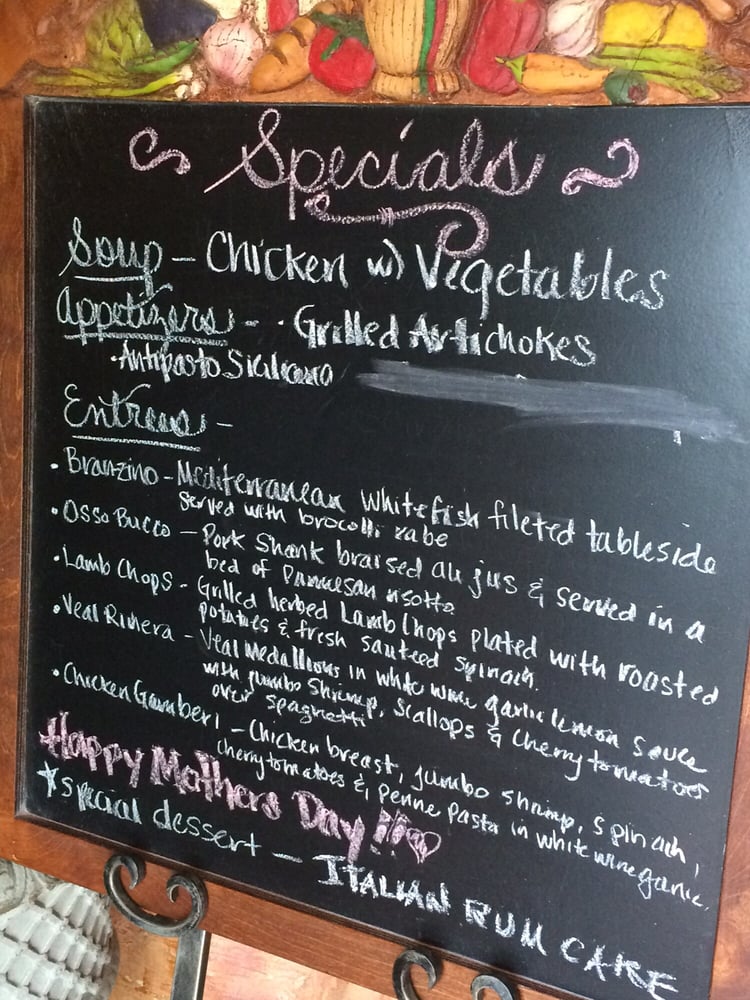 Specials
Soup - Chicken w/ Vigetables
Appetizers - · Grilled Artichokes
· Antipasto Siciliana
Entrees -
· Branzino - Mediterranean Whitefish fileted tableside
served with brocolli rabe
· Osso Bucco - Pork Shank braised au jus & served in a
bed of Parmesan risotto
· Lamb Chops - Grilled herbed Lamb Chops plated with roasted
potatoes & fresh sauteed spinach.
· Veal Riviera - Veal Medallions in white wine garlic lemon sauce
with jumbo Shrimp, Scallops & Cherry tomatoes
over spaghetti
· Chicken Gamberi - Chicken breast, jumbo shrimp, spinach,
cherry tomatoes & penne pasta in white wine garlic.
Happy Mothers Day!!
*special dessert - ITALIAN RUM CAKE